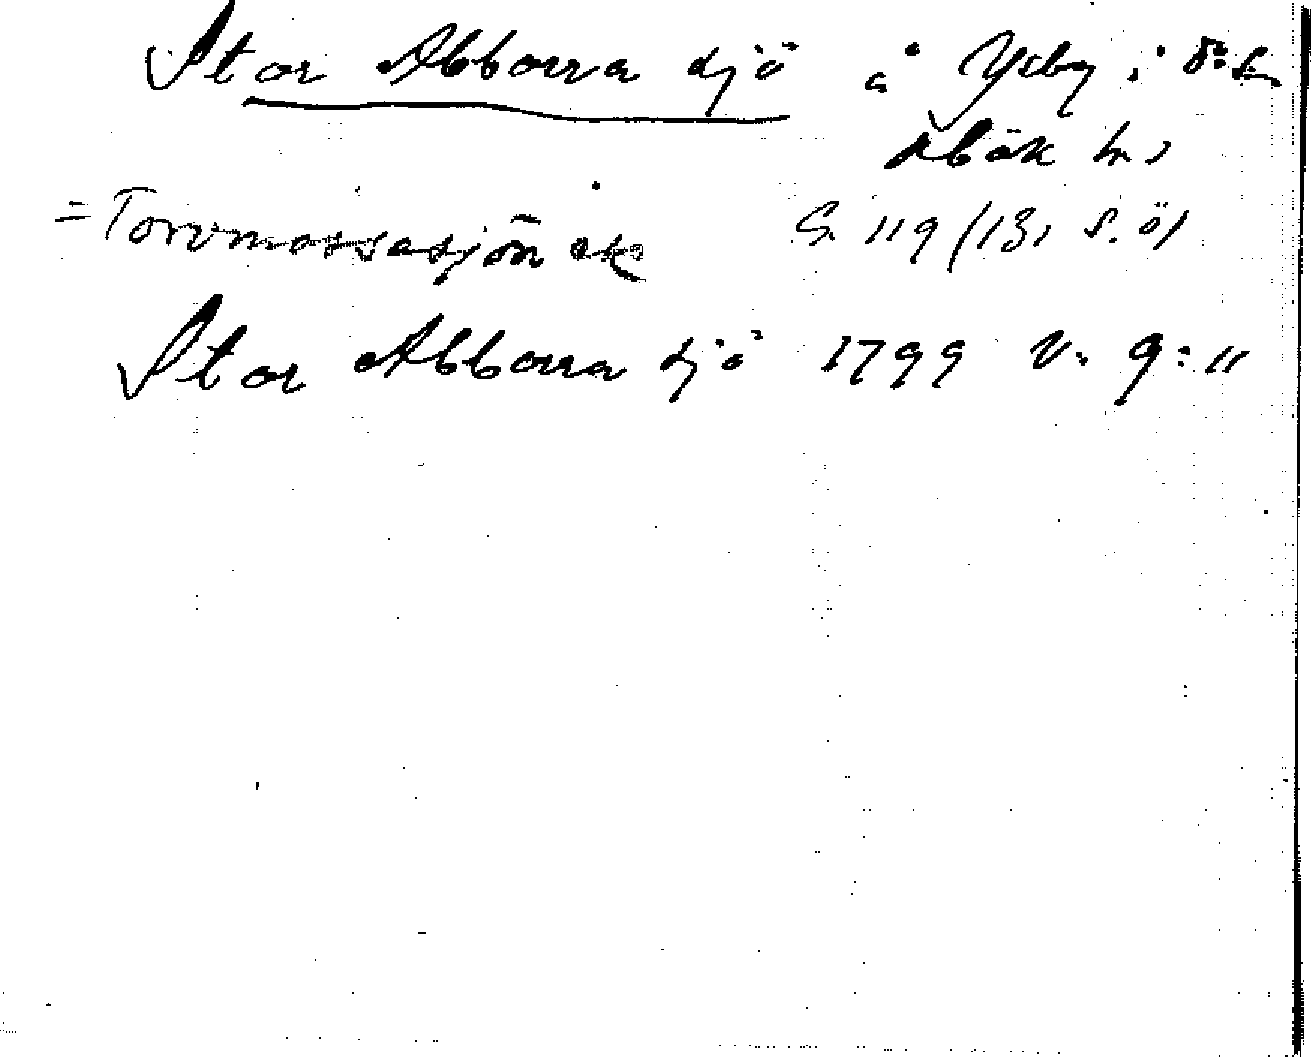 Stor Abborra sjö å Yxby i Ö: L
Åbök hs
= Torvmossasjön ek G 119 (13, S. Ö)
Stor Abborra sjö 1799 V: 9: 11